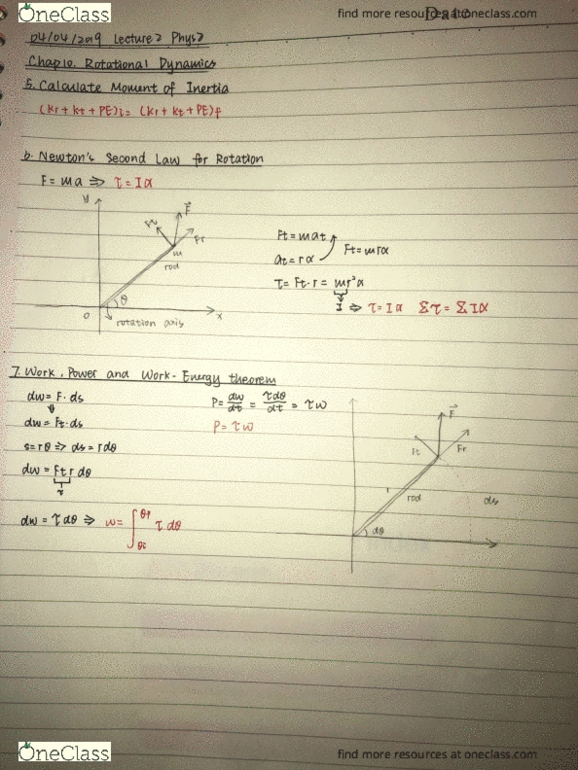 OneClass
find more resources at oneclass.com
Date
04/04/2019 Lecture2 Phys7
Chap10. Rotational Dynamics
5. Calculate Moment of Inertia
(Kr + Kt + PE)i = (Kr + Kt + PE)f
6. Newton's Second Law for Rotation
F = ma ⇒ τ = Iα
y
F⃗
Ft
Fr
m
rod
θ
0
x
rotation axis
Ft = mat
at = rα
Ft = mrα
τ = Ft·r = mr²α
I ⇒ τ = Iα Στ = ΣIα
7. Work, Power and Work-Energy theorem
dw = F·ds
dw = Ft·ds
s = rθ ⇒ ds = rdθ
dw = Ft r dθ
τ
dw = τdθ ⇒ w = ∫ τ dθ
θf
θi
P = dw/dt = τdθ/dt = τω
P = τω
F⃗
Ft
Fr
r
rod
ds
dθ
OneClass
find more resources at oneclass.com